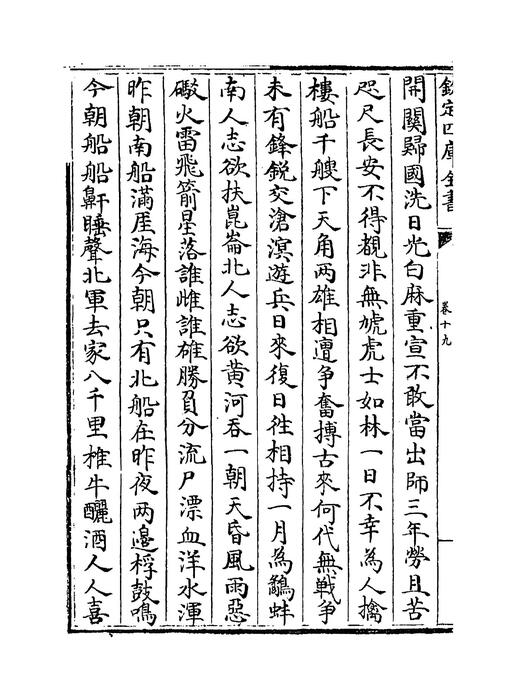 欽定四庫全書
卷十九
開關歸國洗日光白麻重宣不敢當出師三年勞且苦
咫尺長安不得覩非無虓虎士如林一日不幸為人擒
樓船千艘下天角两雄相遭争奮搏古來何代無戰争
未有鋒鋭交滄溟遊兵日來復日徃相持一月為鷸蚌
南人志欲扶崑崙北人志欲黄河吞一朝天昏風雨惡
礮火雷飛箭星落誰雌誰雄勝負分流尸漂血洋水渾
昨朝南船滿厓海今朝只有北船在昨夜两邉桴鼓鳴
今朝船船鼾睡聲北軍去家八千里椎牛釃酒人人喜